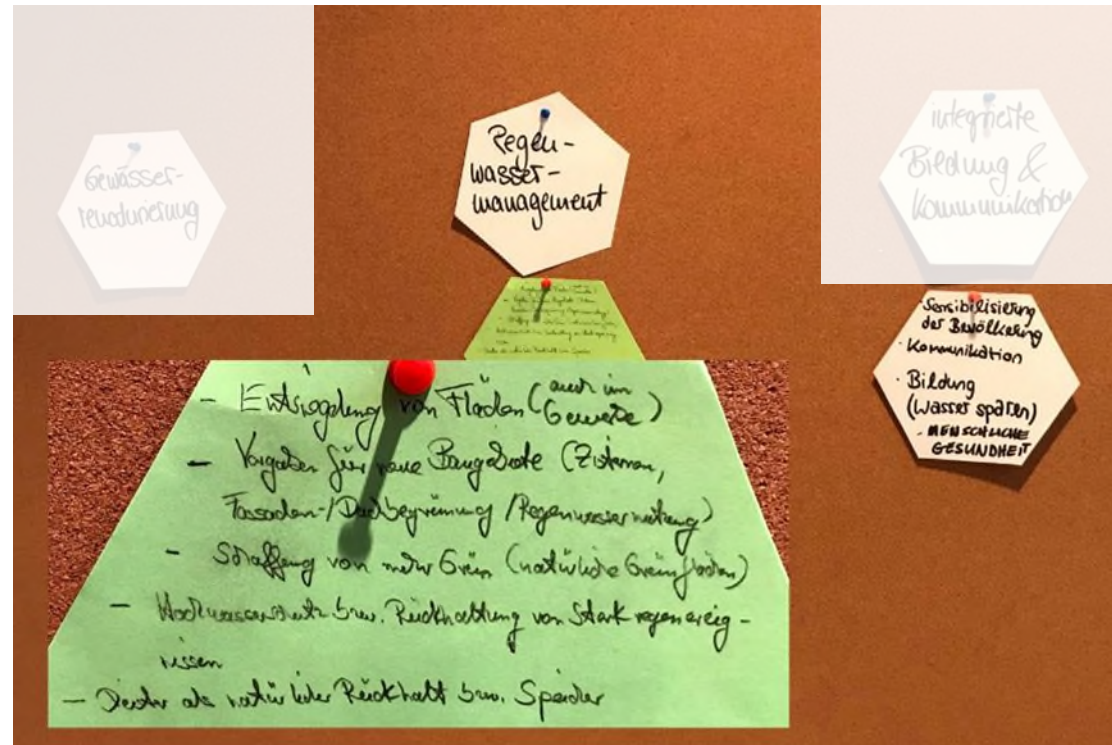 Gewässer-
renaturierung
Regen-
wasser-
management
integrierte
Bildung &
Kommunikation
· Sensibilisierung
der Bevölkerung
· Kommunikation
· Bildung
(Wasser sparen)
· MENSCHLICHE
GESUNDHEIT
- Entsiegelung von Flächen (auch im
Gewerbe)
- Vorgaben für neue Baugebiete (Zisternen,
Fassaden-/Dachbegrünung/Regenwassernutzung)
- Schaffung von mehr Grün (natürliche Grünflächen)
- Hochwasserschutz bzw. Rückhaltung von Starkregenereig-
nissen
- als natürlicher Rückhalt bzw. Speicher